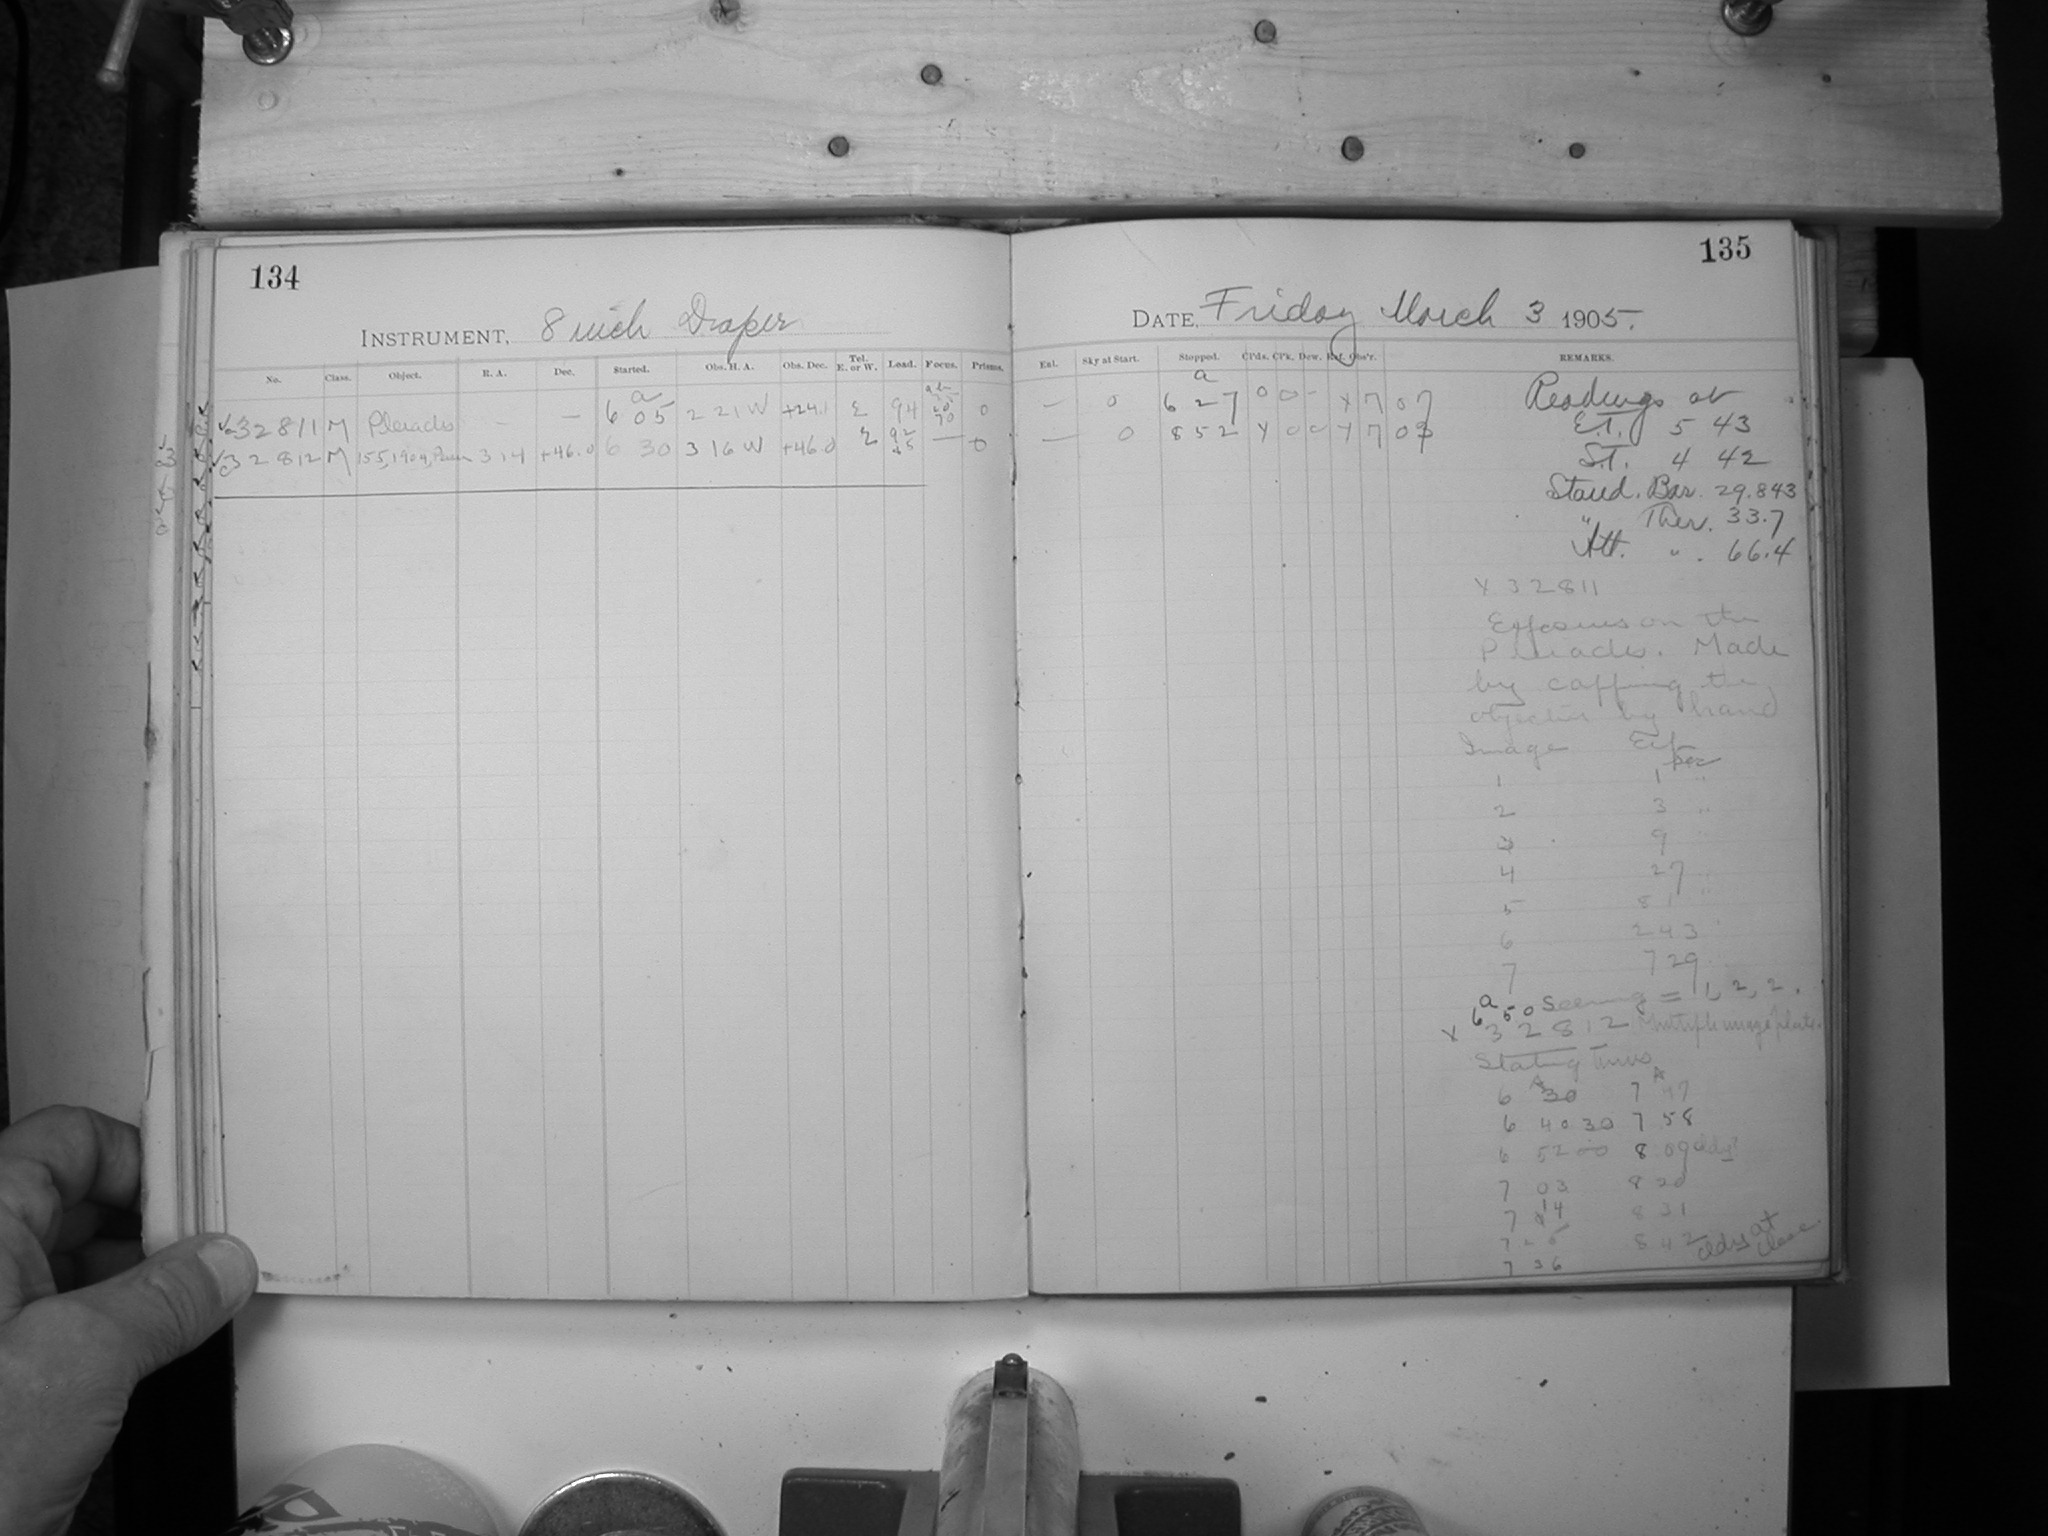 134
INSTRUMENT, 8 inch Draper
No. Class. Object. R. A. Dec. Started. Obs. H. A. Obs. Dec. Tel. E. or W. Lead. Focus. Prisms.
32811 M Pleiades - — a 6 05 2 21 W +24.1 E 94 0
32812 M 155,1904, 3 14 +46.0 6 30 3 16 W +46.0 E — 0
135
DATE, Friday March 3 1905.
Ent. Sky at Start. Stopped. Cl'ds. Cl'k. Dew. Ref. Obs'r. REMARKS.
— 0 a 6 27 0 0 - x 7 0 7
— 0 8 52 x 0 0 x 7 0
Readings at
E.T. 5 43
S.T. 4 42
Stand. Bar. 29.843
" Ther. 33.7
Att. " . 66.4
x 32811
Exposures on the
Pleiades. Made
by capping the
objective by hand
Image Exp
sec
1 1 "
2 3 "
3 9
4 27 "
5 81
6 243 "
7 729
a
6 50 Seeing = 1, 2, 2.
x 32812 Multiple image plate.
Starting Times
6 A 30 7 A 47
6 40 30 7 58
6 52 00 8 09 clds?
7 03 8 20
7 14 8 31
7 25 8 42 cldy at close
7 36